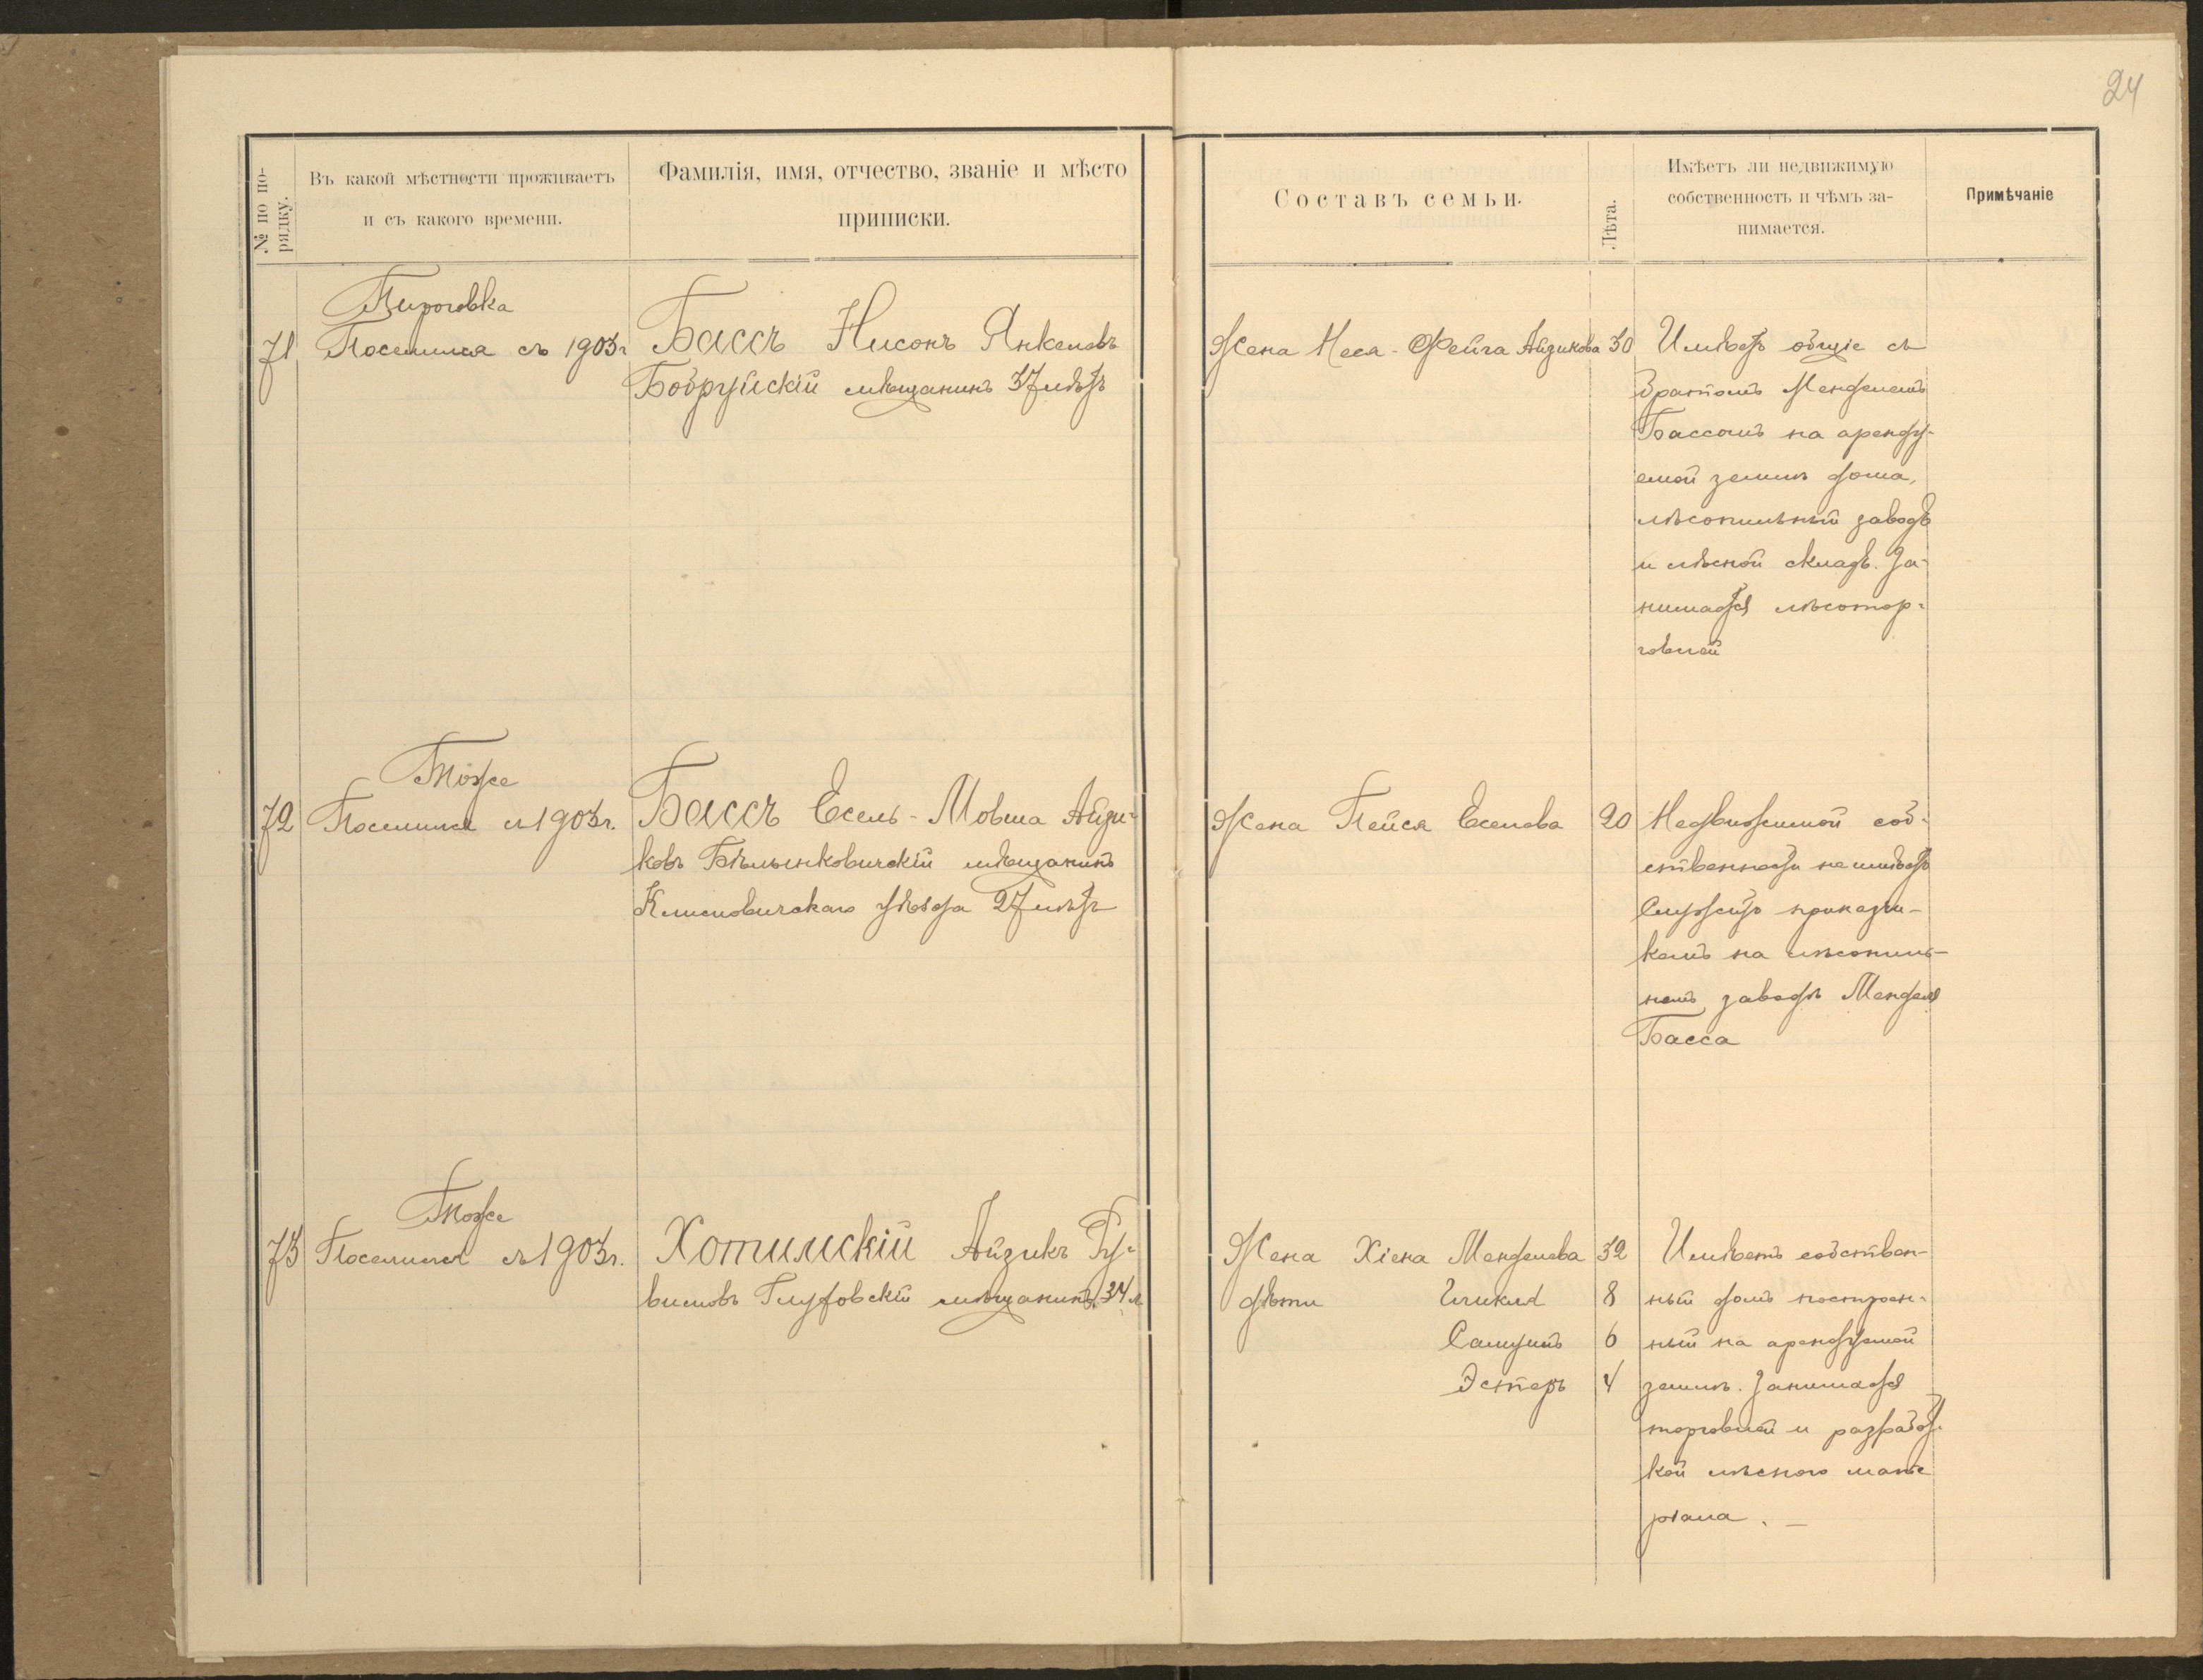 24
№ по по-
рядку.
Въ какой мѣстности проживаетъ
и съ какого времени.
Фамилія, имя, отчество, званіе и мѣсто
приписки.
Составъ семьи.
Лѣта.
Имѣетъ ли недвижимую
собственность и чѣмъ за-
нимается.
Примѣчаніе
Пироговка
71 Поселился съ 1903 г Бассъ Нисонъ Янкелевъ
Бобруйскій мѣщанинъ 37 лѣтъ
Жена Неся-Фейга Айзикова 30
Имѣетъ общіе съ
братомъ Менделемъ
Бассомъ на аренду-
емой землѣ дома,
лѣсопильный заводъ
и лѣсной складъ. За-
нимается лѣсотор-
говлей
Тоже
72 Поселился съ 1903 г. Бассъ Есель-Мовша Айзи-
ковъ Бѣлынковичскій мѣщанинъ
Климовичскаго уѣзда 27 лѣтъ
Жена Пейся Еселева 20
Недвижимой соб-
ственности не имѣетъ
Служитъ приказчи-
комъ на лѣсопиль-
номъ заводѣ Менделя
Басса
Тоже
73 Поселился съ 1903 г. Хотимскій Айзикъ Ру-
виновъ Глуховскій мѣщанинъ 34 л
Жена Хіена Менделева 32
дѣти 8
Самуилъ 6
Эстеръ 4
Имѣетъ собствен-
ный домъ построен-
ный на арендуемой
землѣ. Занимается
торговлей и разработ-
кой лѣсного мате
ріала. —